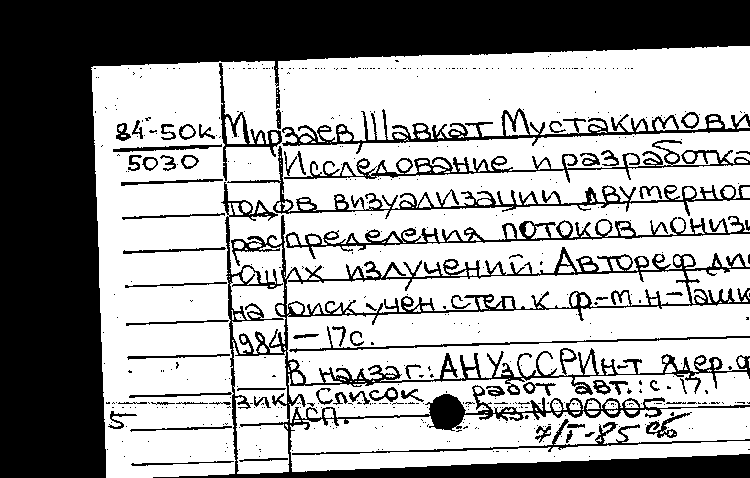 84-50к Мирзаев, Шавкат Мустакимови
5030 Исследование и разработка
тодов визуализации двумерног
распределения потоков ионизи
ющих излучений: Автореф. дис
на соиск. учен. степ. к. ф.-т. н.-Ташк
1984 - 17с.
В надзаг.: АН УзССР Ин-т ядер. ф
зики. Список работ авт.: с. 17.
5 ДСП. Экз. N000005
7/I-85